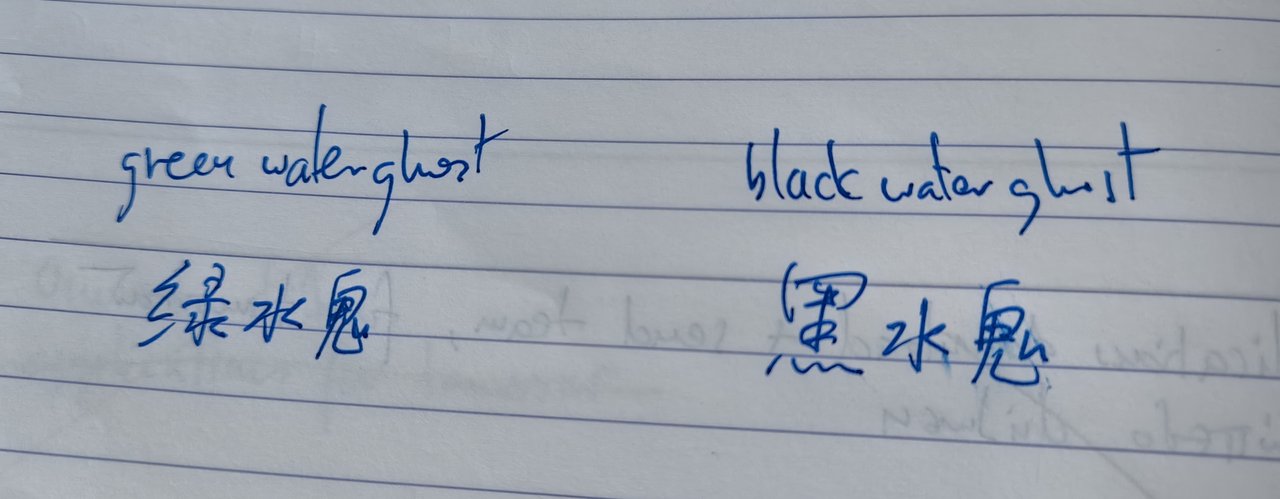 green water ghost black water ghost
绿水鬼 黑水鬼